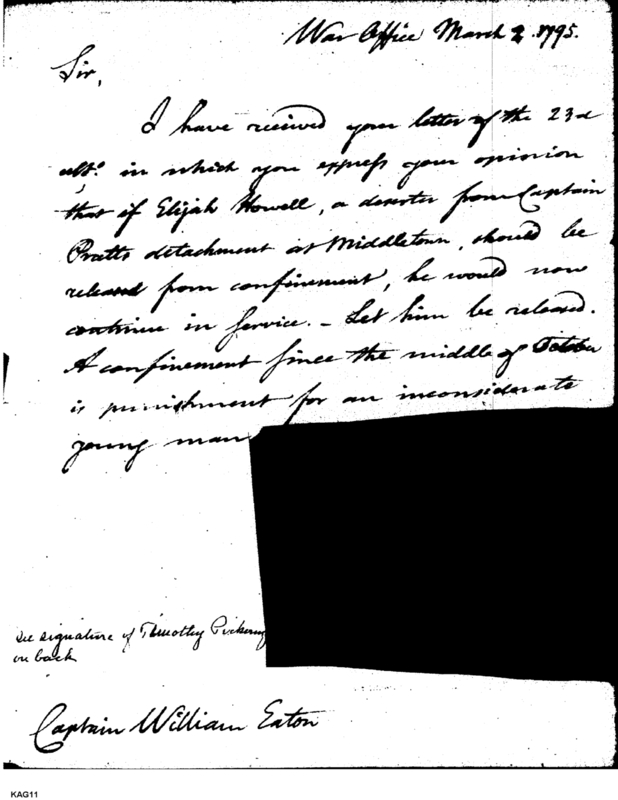 War Office March 2. 1795.
Sir,
I have received your letter of the 23d
ulto. in which you express your opinion
that if Elijah Howell, a deserter from Captain
Pratts detachment at Middletown, should be
released from confinement, he would now
continue in service. – Let him be released.
A confinement since the middle of October
is punishment for an inconsiderate
young man
See signature of Timothy Pickering
on back
Captain William Eaton
KAG11